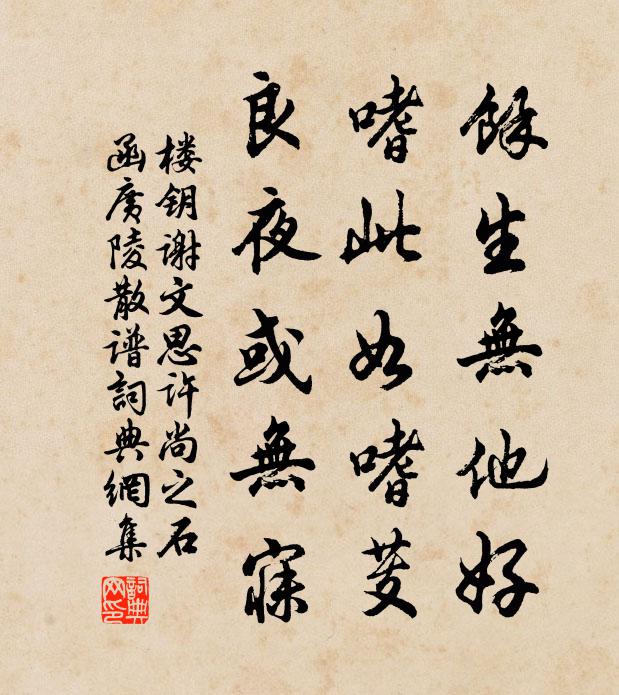 餘生無他好
嗜此如嗜芰
良夜或無寐
楼钥谢文思许尚之石
函廣陵散谱詞典網集
詞典網印